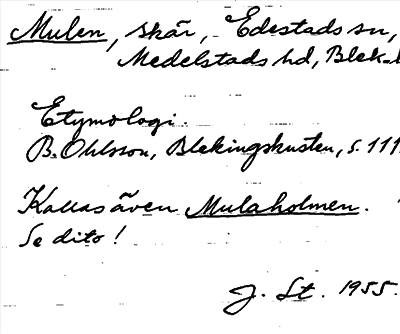 Mulen, skär, Edestads sn,
Medelstads hd, Blek.
Etymologi.
B. Ohlsson, Blekingskusten, s. 111.
Kallas även Mulaholmen.
Se dito!
J. St. 1955.